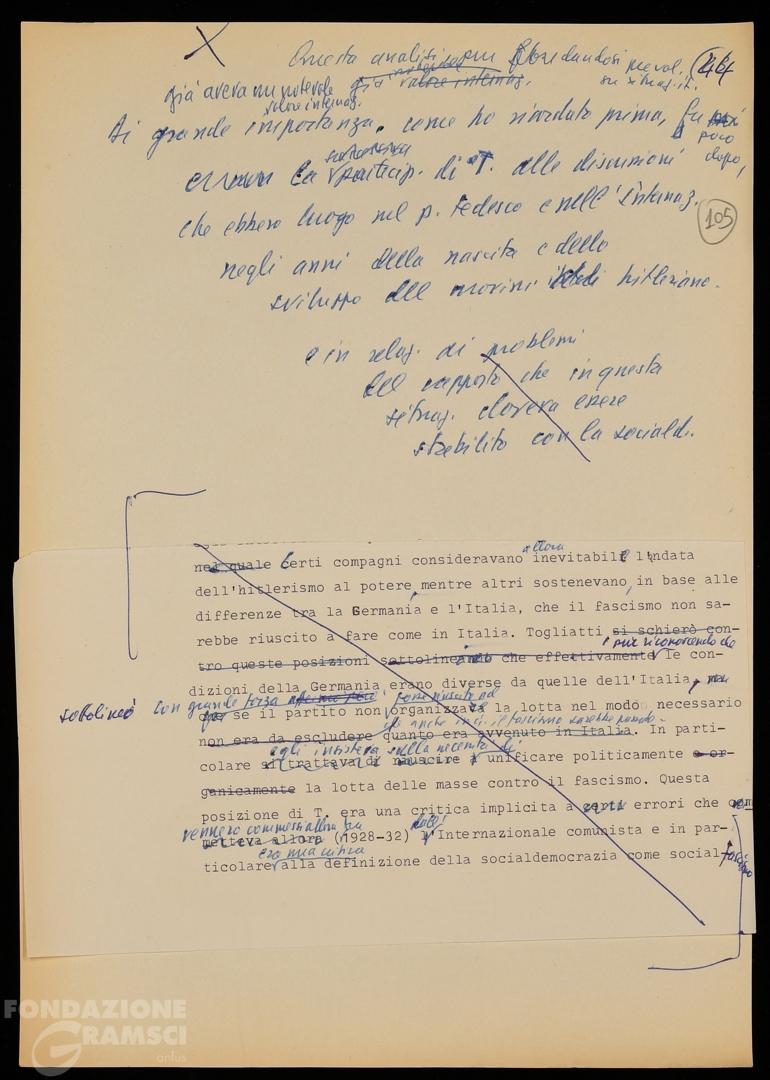 X
Questa analisi, pur fondandosi preval. 44
su situaz. it.
già aveva un notevole già valore internaz.
valore internaz.
Di grande importanza, come ho ricordato prima, fu
poco
dopo,
successiva
la particip. di T. alle discussioni
che ebbero luogo nel p. tedesco e nell'Internaz.
105
negli anni della nascita e dello
sviluppo del movim. hitleriano.
e in relaz. ai problemi
del rapporto che in questa
situaz. doveva essere
stabilito con la sociald.
allora
nel quale Certi compagni consideravano inevitabile l'andata
dell'hitlerismo al potere, mentre altri sostenevano, in base alle
differenze tra la Germania e l'Italia, che il fascismo non sa-
rebbe riuscito a fare come in Italia. Togliatti si schierò con-
, pur riconoscendo che
tro queste posizioni sottolineando che effettivamente le con-
dizioni della Germania erano diverse da quelle dell'Italia, ma
sottolineò con grande forza
che se il partito non organizzava la lotta nel modo necessario
anche in G. il fascismo sarebbe
non era da escludere quanto era avvenuto in Italia. In parti-
egli insisteva sulla necessità di
colare si trattava di riuscire a unificare politicamente e or-
ganicamente la lotta delle masse contro il fascismo. Questa
posizione di T. era una critica implicita a certi errori che com
vennero commessi allora dall'
metteva allora (1928-32) l'Internazionale comunista e in par-
era una critica
ticolare alla definizione della socialdemocrazia come social-
fascismo
FONDAZIONE
GRAMSCI
onlus